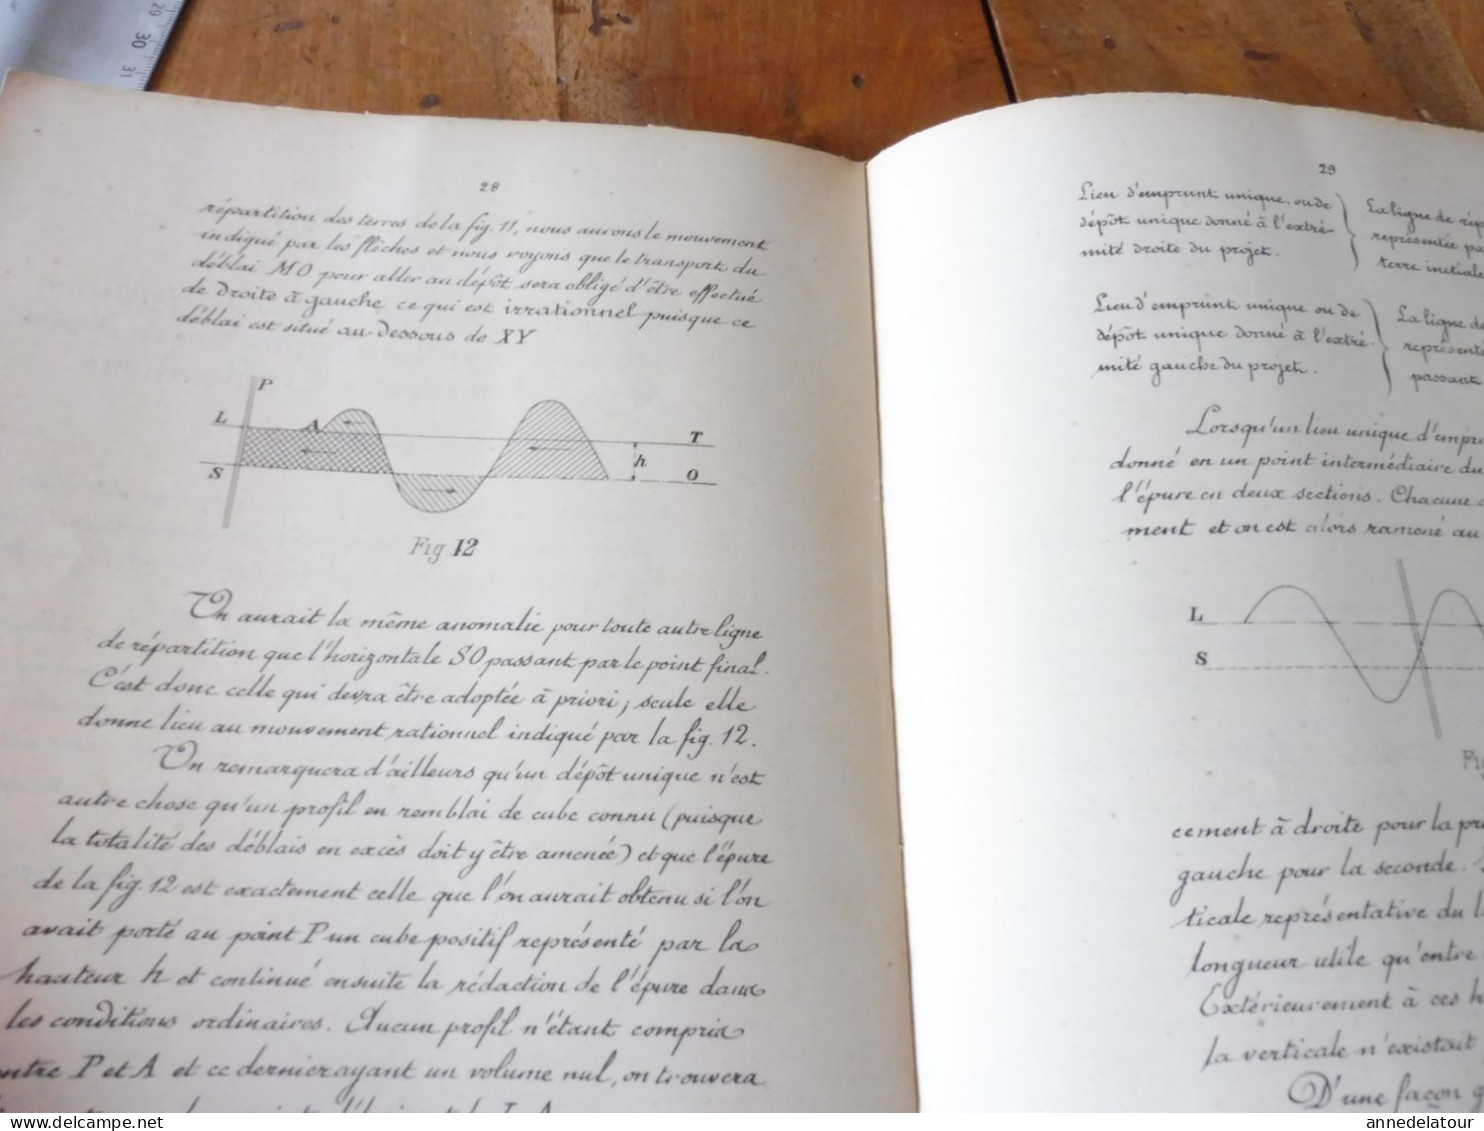 29
30
31
28
répartition des terres de la fig. 11, nous aurons le mouvement
indiqué par les flèches et nous voyons que le transport du
déblai MO pour aller au dépôt sera obligé d'être effectué
de droite à gauche ce qui est irrationnel puisque ce
déblai est situé au-dessous de XY
P
L
A
T
h
S
O
Fig 12
On aurait la même anomalie pour toute autre ligne
de répartition que l'horizontale SO passant par le point final.
C'est donc celle qui devra être adoptée à priori; seule elle
donne lieu au mouvement rationnel indiqué par la fig. 12.
On remarquera d'ailleurs qu'un dépôt unique n'est
autre chose qu'un profil en remblai de cube connu (puisque
la totalité des déblais en excès doit y être amenée) et que l'épure
de la fig. 12 est exactement celle que l'on aurait obtenu si l'on
avait porté au point P un cube positif représenté par la
hauteur h et continué ensuite la rédaction de l'épure dans
les conditions ordinaires. Aucun profil n'étant compris
entre P et A et ce dernier ayant un volume nul, on trouvera
29
Lieu d'emprunt unique, ou de
dépôt unique donné à l'extré-
mité droite du projet.
La ligne de rép
représentée pa
terre initiale
Lieu d'emprunt unique ou de
dépôt unique donné à l'extré-
mité gauche du projet.
La ligne de
représenté
passant
Lorsqu'un lieu unique d'empru
donné en un point intermédiaire du
l'épure en deux sections. Chacune d
ment et on est alors ramené au
L
S
Fig
cement à droite pour la pre
gauche pour la seconde.
ticale représentative du l
longueur utile qu'entre
Extérieurement à ces h
la verticale n'existait
D'une façon g
annedelatour